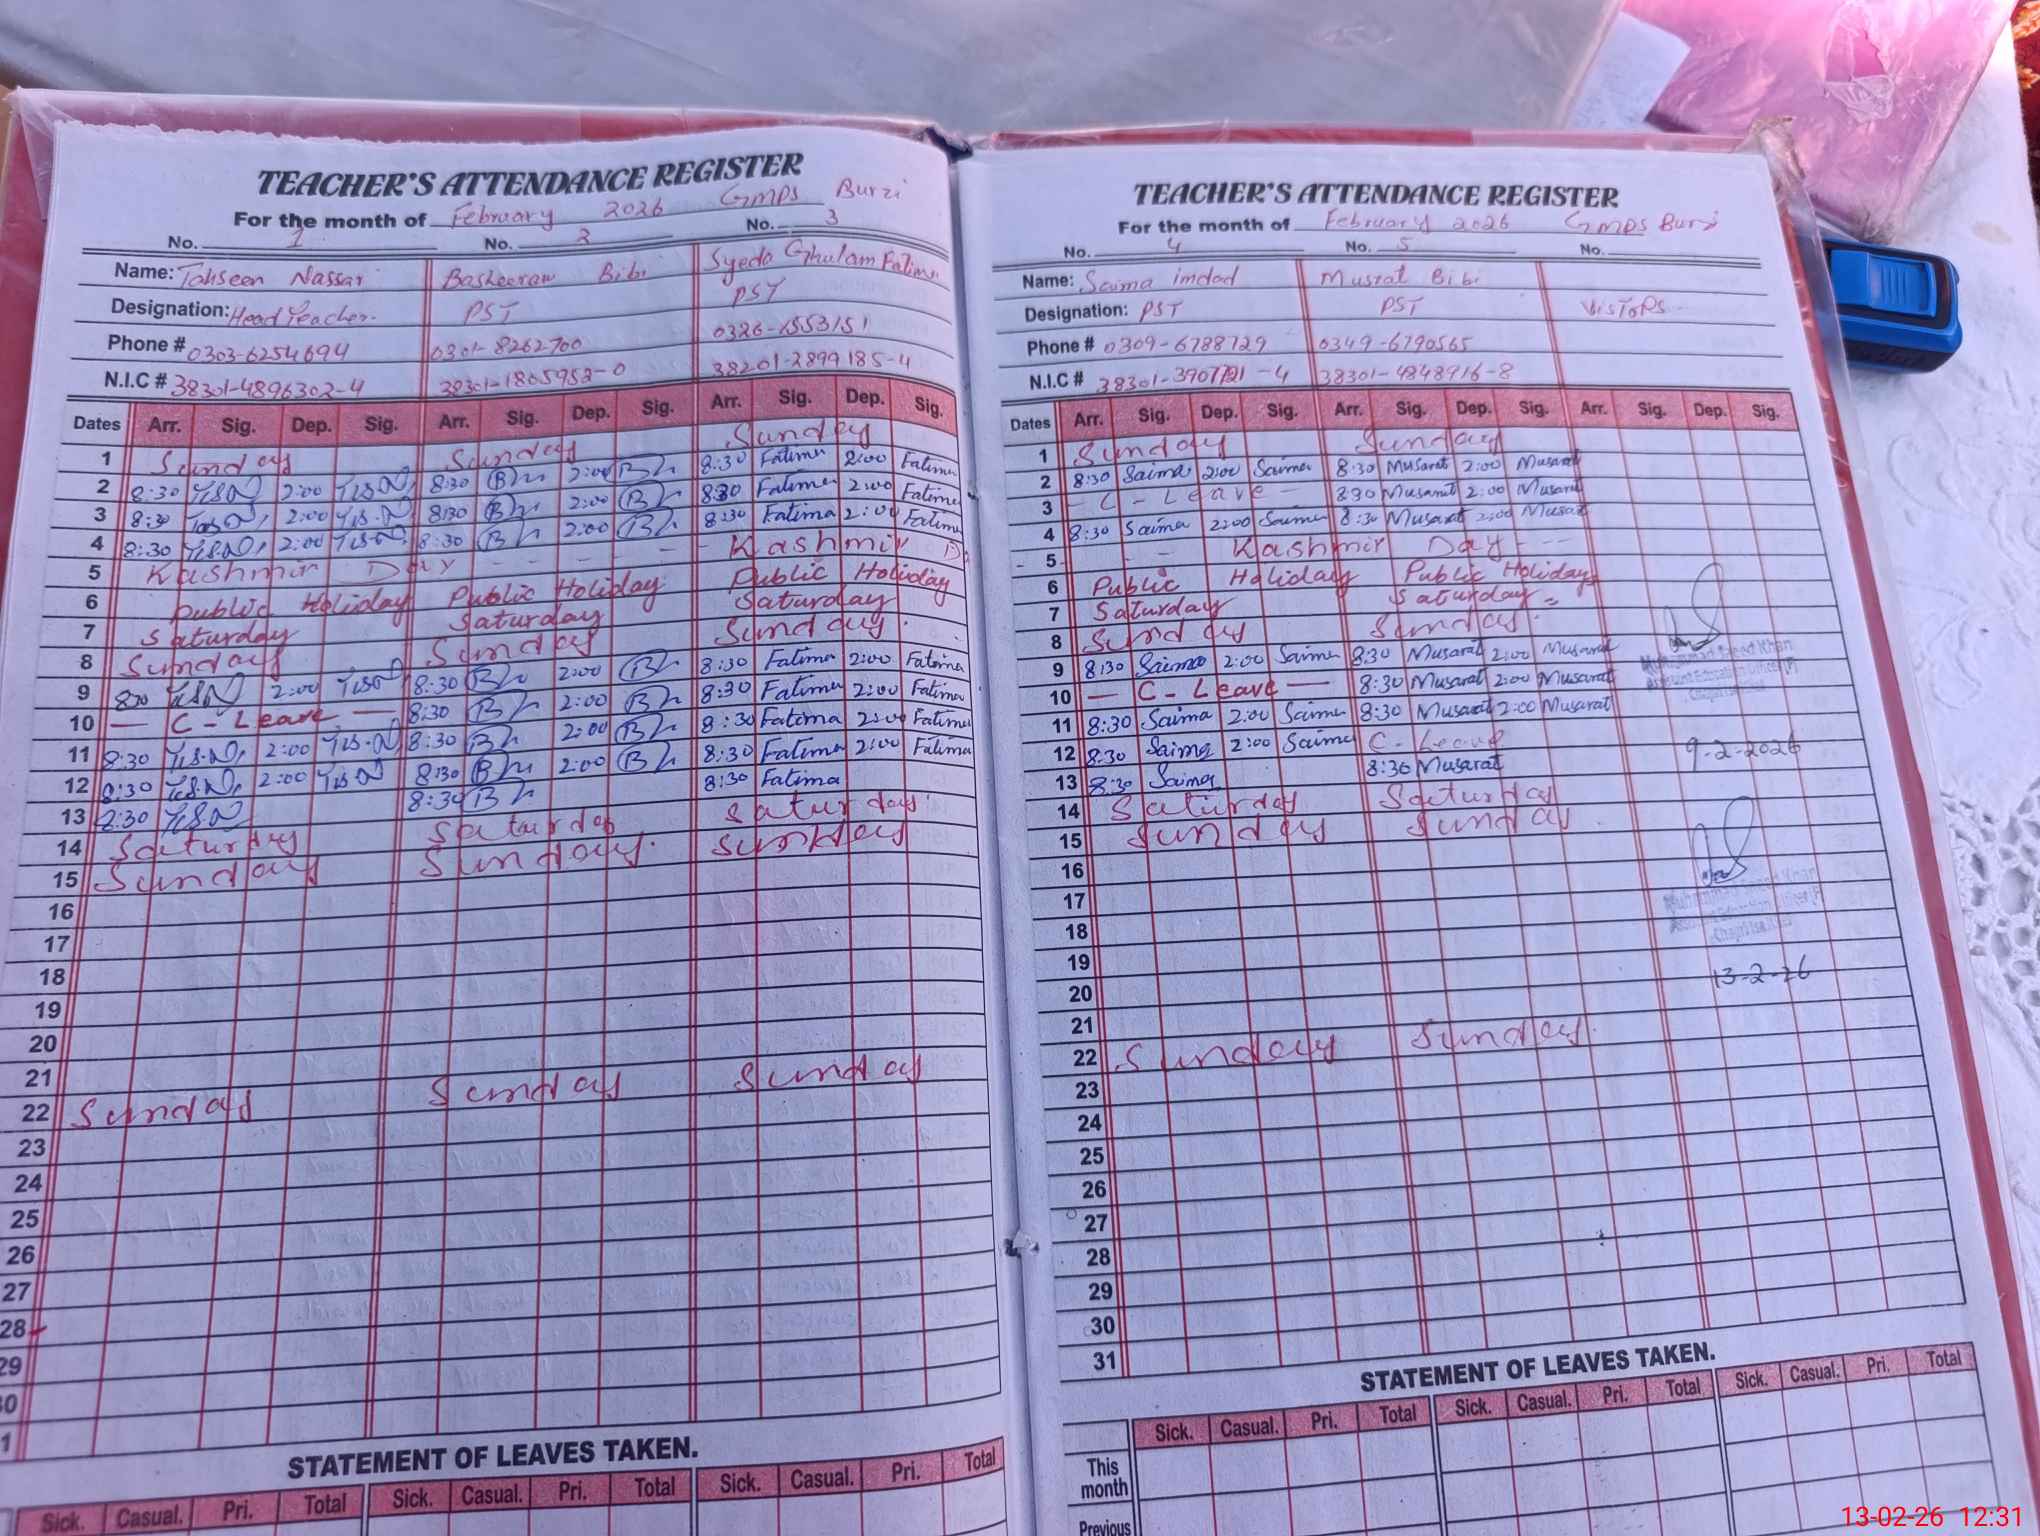 TEACHER'S ATTENDANCE REGISTER
For the month of February 2026 GMPS Burzi
No. 1 No. 2 No. 3
Name: Tahseen Nassar Basheeraw Bibi Syeda Ghulam Fatima
Designation: Head Teacher. PST PST
Phone # 0303-6254694 0301-8262700 0326-1553151
N.I.C # 38301-4896302-4 38301-1865952-0 38201-2899185-4
Dates Arr. Sig. Dep. Sig. Arr. Sig. Dep. Sig. Arr. Sig. Dep. Sig.
1 Sunday Sunday Sunday
2 8:30 2:00 8:30 2:00 8:30 Fatima 2:00 Fatima
3 8:30 2:00 8:30 2:00 8:30 Fatima 2:00 Fatima
4 8:30 2:00 8:30 2:00 8:30 Fatima 2:00 Fatima
5 Kashmir Day - - - - - - - Kashmir D
6 Public Holiday Public Holiday Public Holiday
7 Saturday Saturday Saturday
8 Sunday Sunday Sunday
9 8:30 2:00 8:30 2:00 8:30 Fatima 2:00 Fatima
10 — C - Leave — 8:30 2:00 8:30 Fatima 2:00 Fatima
11 8:30 2:00 8:30 2:00 8:30 Fatima 2:00 Fatima
12 8:30 2:00 8:30 2:00 8:30 Fatima 2:00 Fatima
13 8:30 8:30 8:30 Fatima
14 Saturday Saturday Saturday
15 Sunday Sunday. Sunday
16
17
18
19
20
21
22 Sunday Sunday Sunday
23
24
25
26
27
28
29
30
31
STATEMENT OF LEAVES TAKEN.
Sick. Casual. Pri. Total Sick. Casual. Pri. Total Sick. Casual. Pri. Total
TEACHER'S ATTENDANCE REGISTER
For the month of February 2026 GMPS Burzi
No. 4 No. 5 No.
Name: Saima imdad Musrat Bibi
Designation: PST PST VISITORS
Phone # 0309-6788729 0349-6790565
N.I.C # 38301-3907721-4 38301-4848916-8
Dates Arr. Sig. Dep. Sig. Arr. Sig. Dep. Sig. Arr. Sig. Dep. Sig.
1 Sunday Sunday
2 8:30 Saima 2:00 Saima 8:30 Musarat 2:00 Musarat
3 - C - Leave - 8:30 Musarat 2:00 Musarat
4 8:30 Saima 2:00 Saima 8:30 Musarat 2:00 Musarat
5 - - Kashmir Day - - -
6 Public Holiday Public Holiday
7 Saturday Saturday
8 Sunday Sunday.
9 8:30 Saima 2:00 Saima 8:30 Musarat 2:00 Musarat
10 — C - Leave — 8:30 Musarat 2:00 Musarat
11 8:30 Saima 2:00 Saima 8:30 Musarat 2:00 Musarat
12 8:30 Saima 2:00 Saima C - Leave
13 8:30 Saima 8:30 Musarat
14 Saturday Saturday
15 Sunday Sunday
16
17
18
19
20
21
22 Sunday Sunday.
23
24
25
26
27
28
29
30
31
Muhammad Saeed Khan
Assistant Education Officer
9-2-2026
Muhammad Saeed Khan
Assistant Education Officer
13-2-26
STATEMENT OF LEAVES TAKEN.
Sick. Casual. Pri. Total Sick. Casual. Pri. Total Sick. Casual. Pri. Total
This month
Previous
13-02-26 12:31